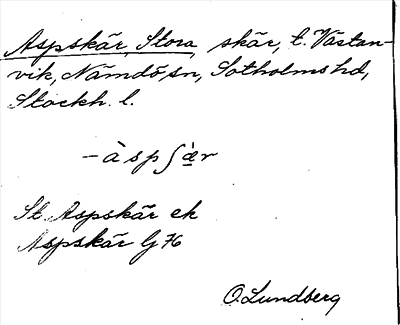 Aspskär, Stora, skär, t. Västan-
vik, Nämdö sn, Sotholms hd,
Stockh. l.
– àspʃæ̀r
St. Aspskär ek
Aspskär Gj 76
O. Lundberg